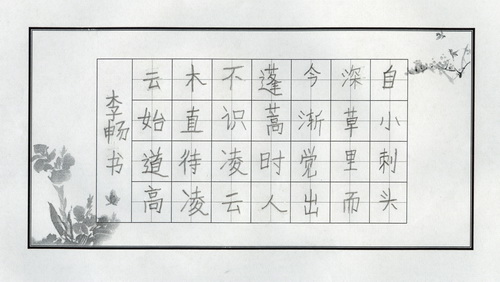 自小刺头
深草里而
今渐觉出
蓬蒿时人
不识凌云
木直待凌
云始道高
李畅书